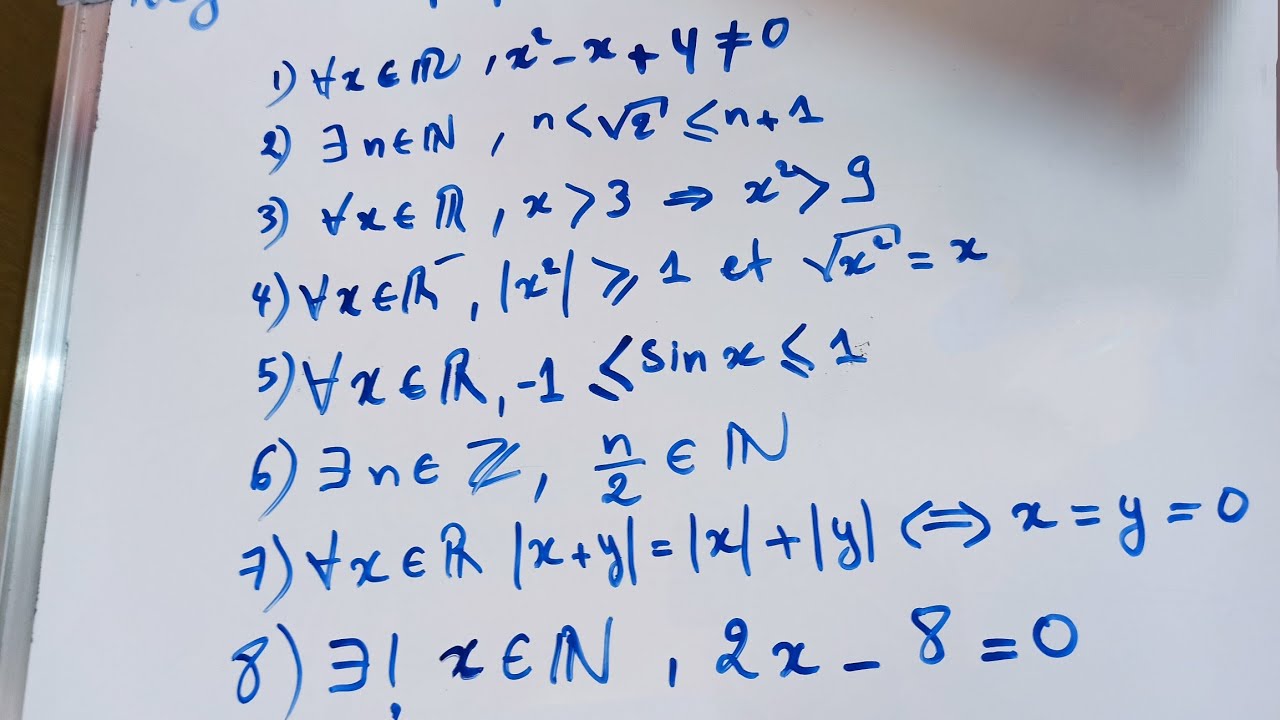 1) ∀x∈ℝ, x² - x + 4 ≠ 0
2) ∃ n∈ℕ, n < √2 ≤ n + 1
3) ∀x∈ℝ, x > 3 ⇒ x² > 9
4) ∀x∈ℝ⁻, |x²| ⩾ 1 et √x² = x
5) ∀x∈ℝ, -1 ≤ sin x ≤ 1
6) ∃ n∈ℤ, n/2 ∈ ℕ
7) ∀x∈ℝ |x+y| = |x| + |y| ⟺ x = y = 0
8) ∃! x∈ℕ, 2x - 8 = 0